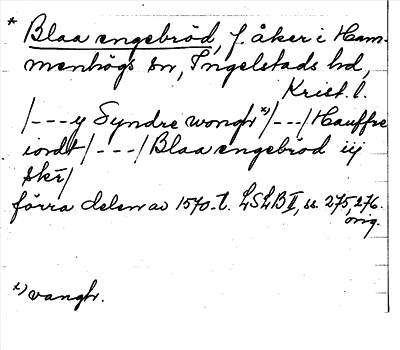 * Blaa engebröd, f. åker i Ham-
menhögs sn, Ingelstads hd,
Krist. l.
/---y Syndre wongr x)/---/Hauffre
iordt/---/Blaa engebröd iij
skr/
förra delen av 1570-t. LSLB II, s. 275, 276.
orig.
x) vangr.